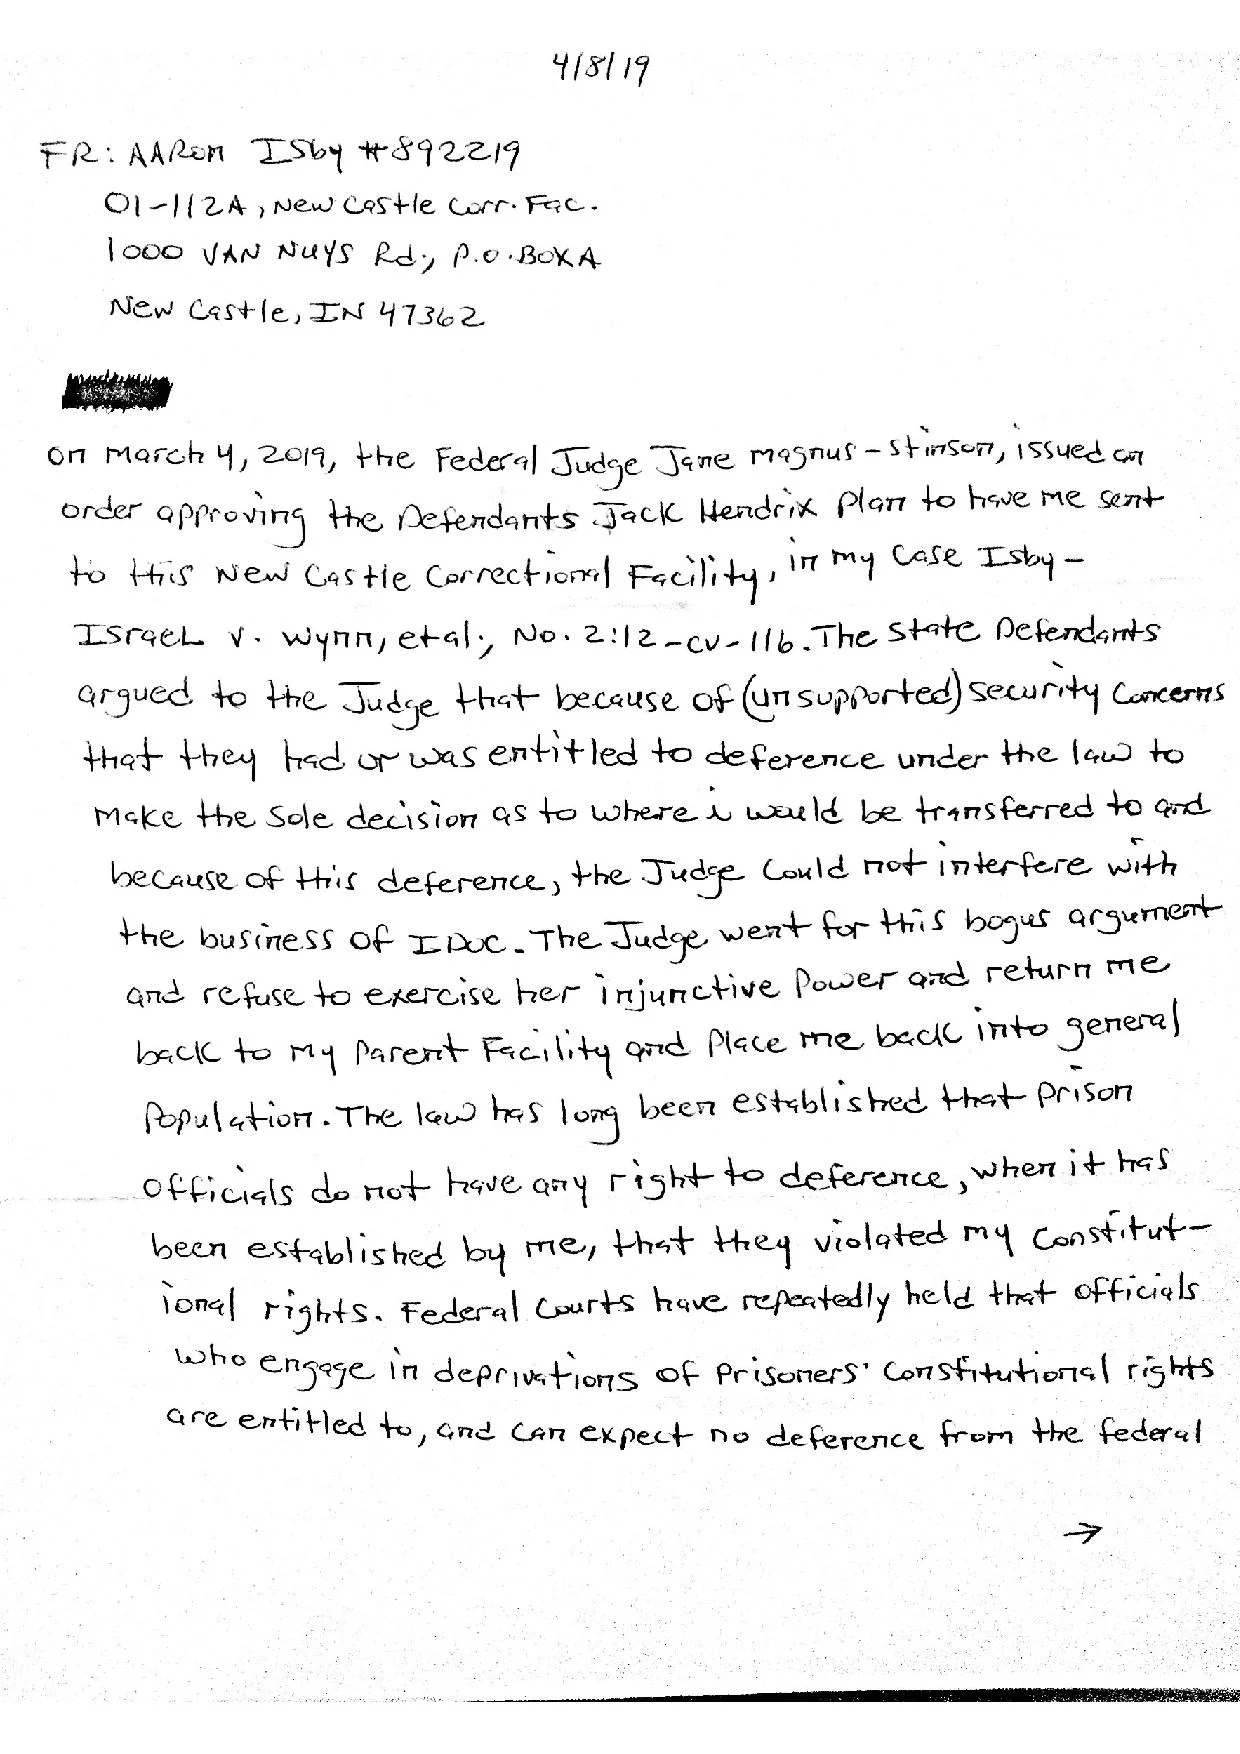 4/8/19
FR: AARON ISby #892219
01-112A, New Castle Corr. Fac.
1000 VAN NUYS Rd., P.O. BOX A
New Castle, IN 47362
on March 4, 2019, the Federal Judge Jane Magnus-Stinson, issued an
order approving the Defendants Jack Hendrix Plan to have me sent
to this New Castle Correctional Facility, in my case Isby-
Israel v. Wynn, et al., No. 2:12-cv-116. The State Defendants
argued to the Judge that because of (unsupported) security concerns
that they had or was entitled to deference under the law to
make the sole decision as to where i would be transferred to and
because of this deference, the Judge could not interfere with
the business of IDOC. The Judge went for this bogus argument
and refuse to exercise her injunctive Power and return me
back to my Parent Facility and Place me back into general
Population. The law has long been established that prison
officials do not have any right to deference, when it has
been established by me, that they violated my Constitut-
ional rights. Federal Courts have repeatedly held that officials
who engage in deprivations of prisoners' constitutional rights
are entitled to, and can expect no deference from the federal
→